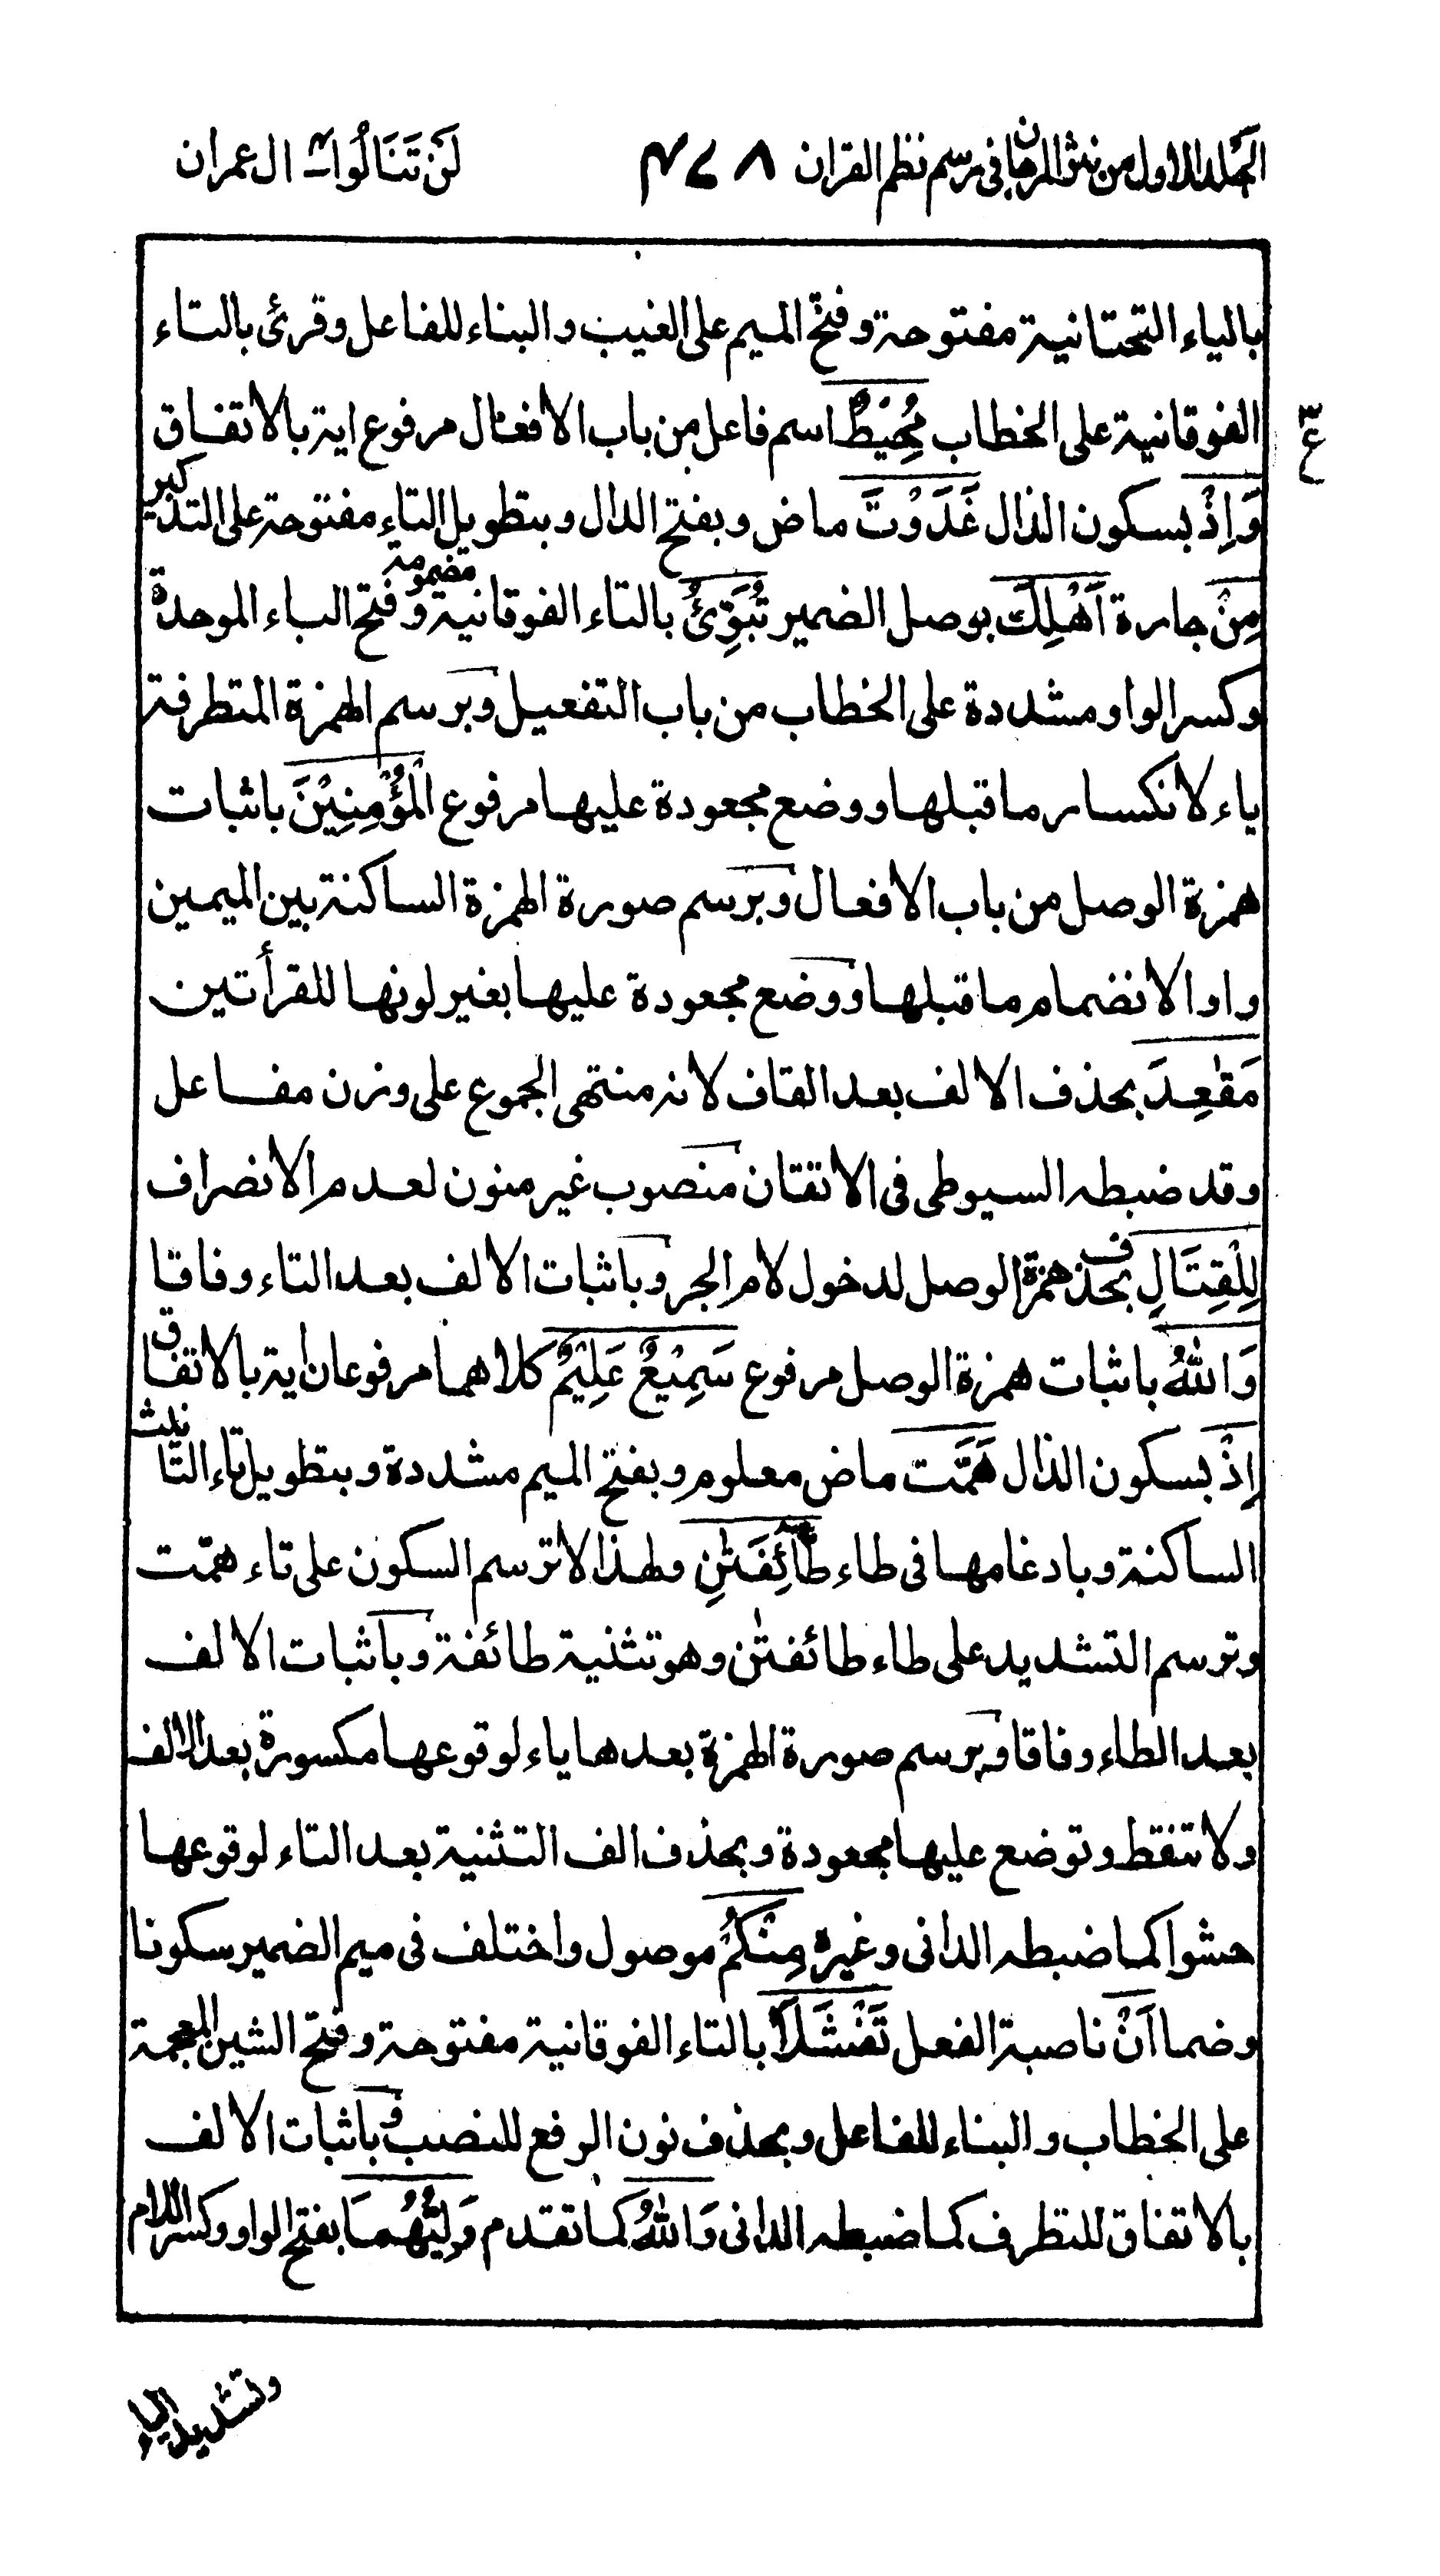 الجلد الاول من نثر المرجان فى رسم نظم القران ٤٧٨ لَنْ تَنَالُوا ٤ ال عمران
بالياء التحتانية مفتوحة وفتح الميم على الغيب والبناء للفاعل وقرئ بالتاء
الفوقانية على الخطاب مُحِيْطٌ اسم فاعل من باب الافعال مرفوع اية بالاتفاق
ع
وَاِذْ بسكون الذال غَدَوْتَ ماض وبفتح الدال وبتطويل التاء مفتوحة على التذكير
مِنْ جارة اَهْلِكَ بوصل الضمير تُبَوِّئُ بالتاء الفوقانية مضمومة وفتح الباء الموحدة
وكسر الواو مشددة على الخطاب من باب التفعيل وبرسم الهمزة المتطرفة
ياء لانكسار ما قبلها ووضع مجعودة عليها مرفوع الْمُؤْمِنِيْنَ باثبات
همزة الوصل من باب الافعال وبرسم صورة الهمزة الساكنة بين الميمين
واوا لانضمام ما قبلها ووضع مجعودة عليها بغير لونها للقرأتين
مَقٰعِدَ بحذف الالف بعد القاف لانه منتهى الجموع على وزن مفاعل
وقد ضبطه السيوطى فى الاتقان منصوب غير منون لعدم الانصراف
لِلْقِتَالِ بحذف همزة الوصل لدخول لام الجر وباثبات الالف بعد التاء وفاقا
وَاللّٰهُ باثبات همزة الوصل مرفوع سَمِيْعٌ عَلِيْمٌ كلاهما مرفوعان اية بالاتفاق
اِذْ بسكون الذال هَمَّت ماض معلوم وبفتح الميم مشددة وبتطويل تاء التانيث
الساكنة وبادغامها فى طاء طَّآئِفَتٰنِ ولهذا لا ترسم السكون على تاء همّت
وترسم التشديد على طاء طائفتٰن وهو تثنية طائفة وباثبات الالف
بعد الطاء وفاقا وبرسم صورة الهمزة بعدها ياء لوقوعها مكسورة بعد الالف
ولا تنقط وتوضع عليها مجعودة وبحذف الف التثنية بعد التاء لوقوعها
حشوا كما ضبطه الدانى وغيره مِنْكُمْ موصول واختلف فى ميم الضمير سكونا
وضما اَنْ ناصبة الفعل تَفْشَلَا بالتاء الفوقانية مفتوحة وفتح الشين المعجمة
على الخطاب والبناء للفاعل وبحذف نون الرفع للنصب وباثبات الالف
بالاتفاق للتطرف كما ضبطه الدانى وَاللّٰهُ كما تقدم وَلِيُّهُمَا بفتح الواو وكسر اللام
وتشديد الياء